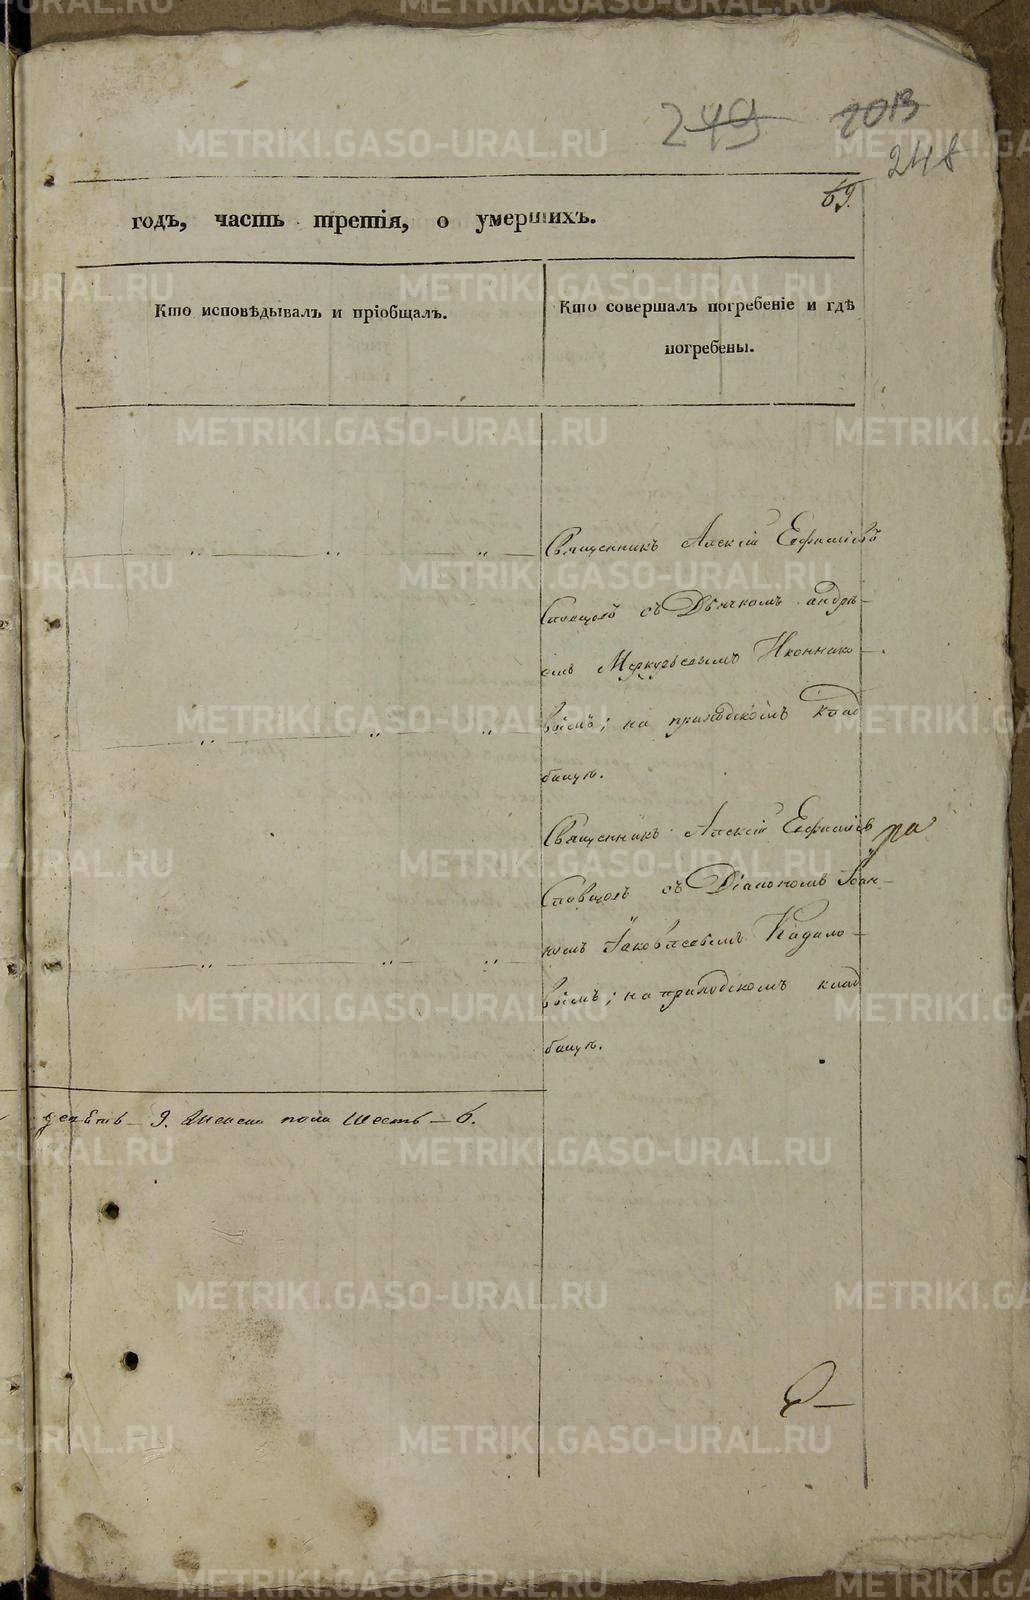 249 2013
248
69.
годъ, часть третія, о умершихъ.
Кто исповѣдывалъ и пріобщалъ.
Кто совершалъ погребеніе и гдѣ
погребены.
Священникъ Алексій Ефиміевъ
Словцовъ съ Дьячкомъ андрѣ-
емъ Меркурьевымъ Иконнико-
вымъ; на приходскомъ клад
бищѣ.
Священникъ Алексій Ефиміев
Словцовъ съ Діакономъ Іоан-
номъ Іаковлевымъ Кадило-
вымъ; на приходскомъ клад
бищѣ.
девять - 9. Женска пола шесть - 6.
METRIKI.GASO-URAL.RU